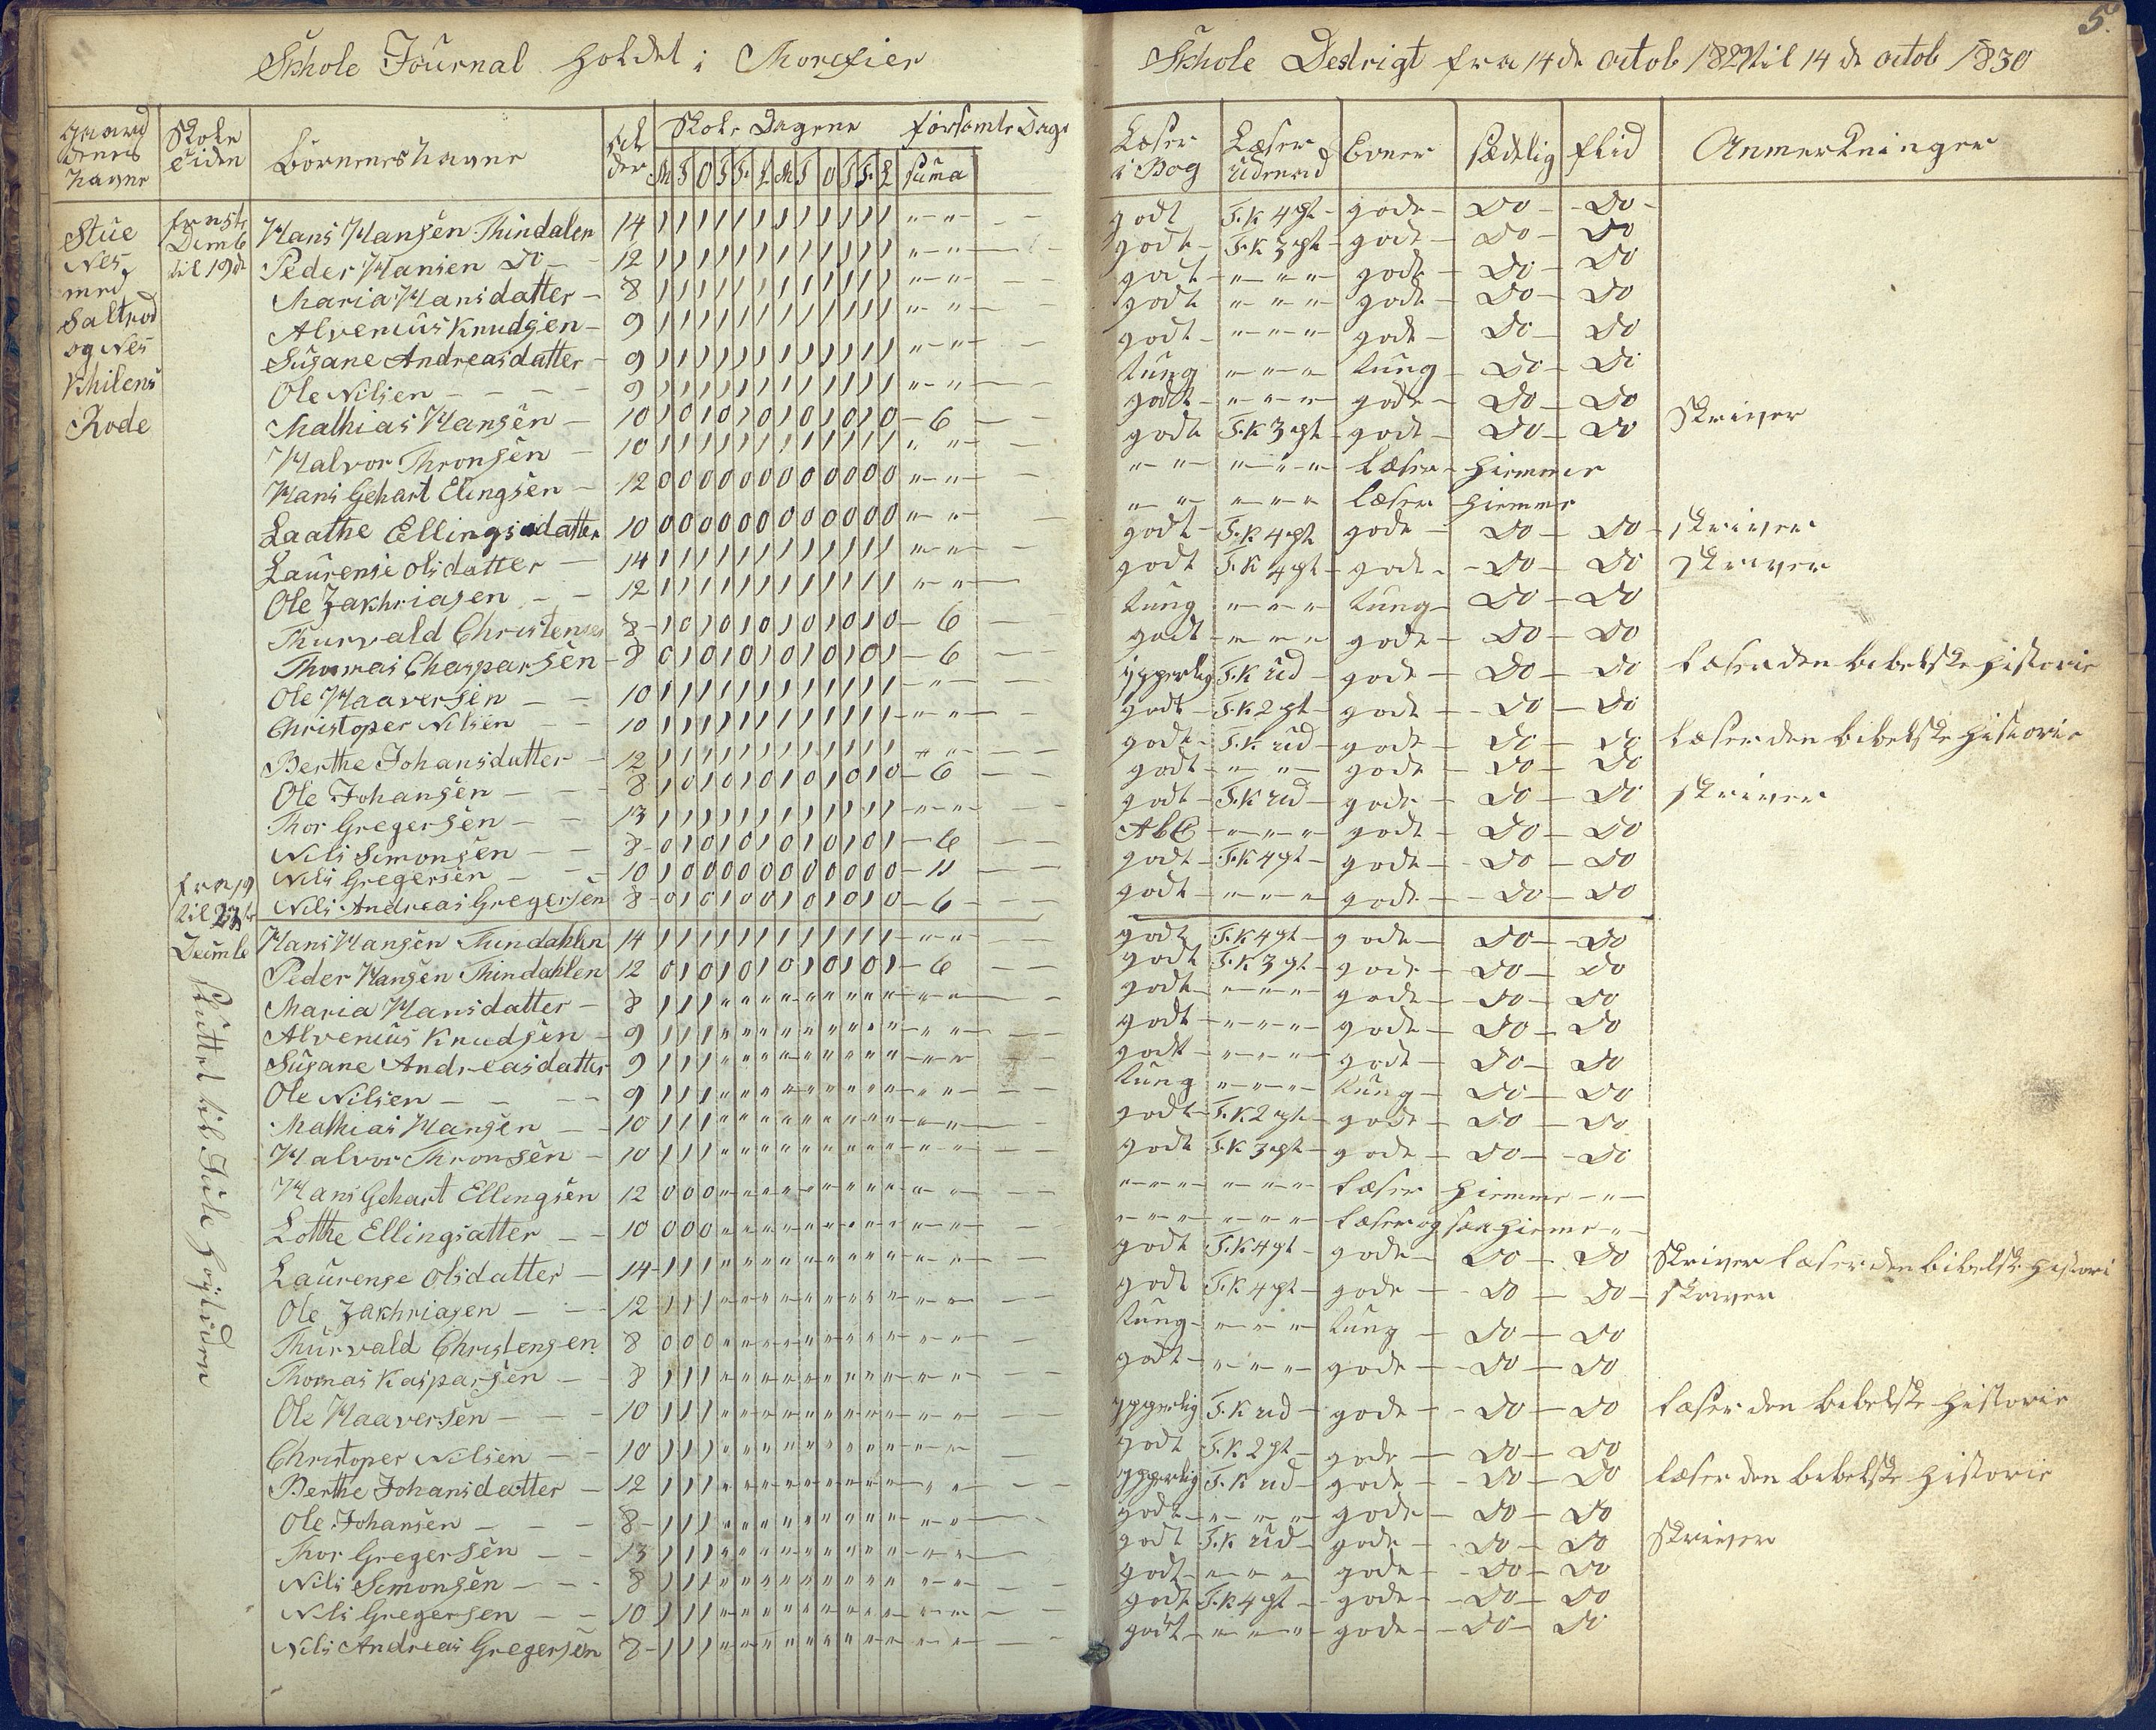 5.
Skhole Journal holdet i Thorefier Skhole Destrigt fra 14 de octob 1829 til 14 de octob 1830
gaard denes navne | Skole Tiden | Börnenes navne | Al der | Skole Dagene M T O T F L M T O T F L | forsømte Dage suma | Læser i Bog | Læser udenad | Evner | sædelig | flid | Anmerkninger
Stue Nes med Saltrod og Nes Khilens Rode
Hans Hansen Thindalen 14 1 1 1 1 1 1 1 1 1 1 1 1 " " godt T.K 4 pt gode Do Do
Peder Hansen Do 12 1 1 1 1 1 1 1 1 1 1 1 1 " " godt T.K 3 pt gode Do Do
Maria Hansdatter 8 1 1 1 1 1 1 1 1 1 1 1 1 " " godt " " " gode Do Do
Alvenius Knudsen 9 1 1 1 1 1 1 1 1 1 1 1 1 " " godt " " " gode Do Do
Susane Andreasdatter 9 1 1 1 1 1 1 1 1 1 1 1 1 " " godt " " " gode Do Do
Ole Nilsen 9 1 1 1 1 1 1 1 1 1 1 1 1 " " tung " " " tung Do Do
Mathias Hansen 10 1 0 1 0 1 0 1 0 1 0 1 0 6 godt " " " gode Do Do
Halvor Thronsen 10 1 1 1 1 1 1 1 1 1 1 1 1 " " godt T.K 3 pt gode Do Do skriver
Hans Gehart Elingsen 12 0 0 0 0 0 0 0 0 0 0 0 0 " " " " " " " læser hiemme
Laathe Ellingsdatter 10 0 0 0 0 0 0 0 0 0 0 0 0 " " " " " " " læser hiemme
Laurense Olsdatter 14 1 1 1 1 1 1 1 1 1 1 1 1 " " godt T.K 4 pt gode Do Do skriver
Ole Zakhriasen 12 1 1 1 1 1 1 1 1 1 1 1 1 " " godt T.K 4 pt gode Do Do skriver
Thurvald Christensen 8 1 0 1 0 1 0 1 0 1 0 1 0 6 tung " " " tung Do Do
Thomas Chasparsen 8 0 1 0 1 0 1 0 1 0 1 0 1 6 godt " " " gode Do Do
Ole Haaversen 10 1 1 1 1 1 1 1 1 1 1 1 1 " ypperlig T.K ud gode Do Do læser den bibelske historie
Christoper Nilsen 10 1 1 1 1 1 1 1 1 1 1 1 1 " " godt T.K 2 pt gode Do Do
Berthe Johansdatter 12 1 1 1 1 1 1 1 1 1 1 1 1 " " godt T.K ud gode Do Do læser den bibelske historie
Ole Johansen 8 1 0 1 0 1 0 1 0 1 0 1 0 6 godt " " gode Do Do
Thor Gregersen 13 1 1 1 1 1 1 1 1 1 1 1 1 " " godt T.K ud gode Do Do skriver
Nils Simonsen 8 0 1 0 1 0 1 0 1 0 1 0 1 6 AbC " " " gode Do Do
Nils Gregersen 10 1 0 0 0 0 0 0 0 0 0 0 0 11 godt T.K 4 pt gode Do Do
fra 19 til Decmb
Nils Andreas Gregersen 8 0 1 0 1 0 0 1 0 1 0 1 0 6 godt " " " gode Do Do
Hans Hansen Thindahlen 14 1 1 1 1 1 1 1 1 1 1 1 1 " " godt T.K 4 pt gode Do Do
Peder Hansen Thindahlen 12 0 1 0 1 0 1 0 1 0 1 0 1 6 godt T.K 3 pt gode Do Do
sluttet til Jule høgtiden
Maria Hansdatter 8 1 1 1 " " " " " " " " " " " godt " " " gode Do Do
Alvenius Knudsen 9 1 1 1 " " " " " " " " " " " godt " " " gode Do Do
Susane Andreasdatter 9 1 1 1 " " " " " " " " " " " godt " " " gode Do Do
Ole Nilsen 9 1 1 1 " " " " " " " " " " " tung " " " tung Do Do
Mathias Hansen 10 1 1 1 " " " " " " " " " " " godt T.K 2 pt gode Do Do
Halvor Thronsen 10 1 1 1 " " " " " " " " " " " godt T.K 3 pt gode Do Do
Hans Gehart Ellingsen 12 0 0 0 " " " " " " " " " " " " " " " " " læser hiemme "
Lotthe Ellingsatter 10 0 0 0 " " " " " " " " " " " " " " " " " læser og hieme "
Laurense Olsdatter 14 1 1 1 " " " " " " " " " " " godt T.K 4 pt gode Do Do skriver læser den bibelsk histori
Ole Zakhriasen 12 1 1 1 " " " " " " " " " " " godt T.K 4 pt gode Do Do skriver
Thurvald Christensen 8 0 0 0 " " " " " " " " " " " tung " " " tung Do Do
Thomas Kasparsen 8 1 1 1 " " " " " " " " " " " godt " " " gode Do Do
Ole Haaversen 10 1 1 1 " " " " " " " " " " " ypperlig T.K ud gode Do Do læser den bibelske historie
Christoper Nilsen 10 1 1 1 " " " " " " " " " " " godt T.K 2 pt gode Do Do
Berthe Johansdatter 12 1 1 1 " " " " " " " " " " " ypperlig T.K ud gode Do Do læser den bibelske historie
Ole Johansen 8 1 1 1 " " " " " " " " " " " godt " " " gode Do Do
Thor Gregersen 13 1 1 1 " " " " " " " " " " " godt T.K ud gode Do Do skriver
Nils Simonsen 8 1 1 1 " " " " " " " " " " " godt " " " gode Do Do
Nils Gregersen 10 1 1 1 " " " " " " " " " " " godt T.K 4 pt gode Do Do
Nils Andreas Gregersen 8 1 1 1 " " " " " " " " " " " godt " " " gode Do Do